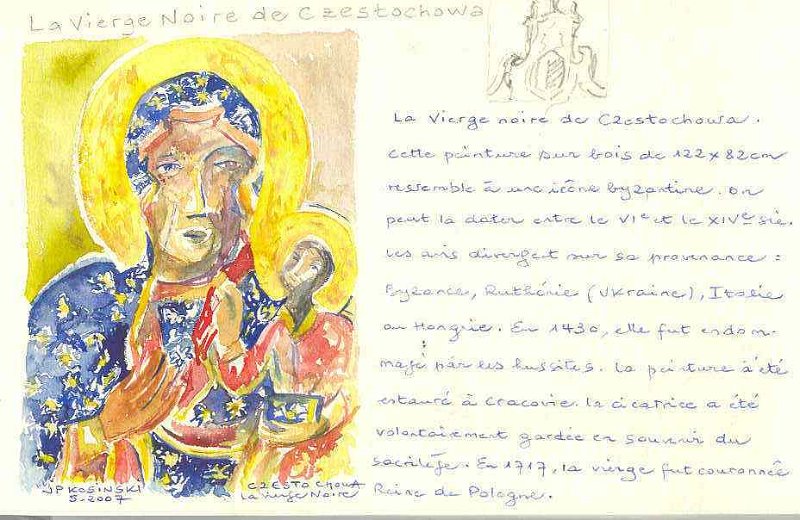 La Vierge Noire de Czestochowa
La Vierge noire de Czestochowa.
Cette peinture sur bois de 122 x 82 cm
ressemble à une icône byzantine. On
peut la dater entre le VIe et le XIVe siè.
Les avis divergent sur sa provenance :
Byzance, Ruthénie (Ukraine), Italie
ou Hongrie. En 1430, elle fut endom-
magé par les hussites. La peinture a été
estauré à Cracovie. la cicatrice a été
volontairement gardée en souvenir du
sacrilège. En 1717, la vierge fut couronnée
Reine de Pologne.
JP KOSINSKI
5-2007
CZESTOCHOWA
La Vierge Noire